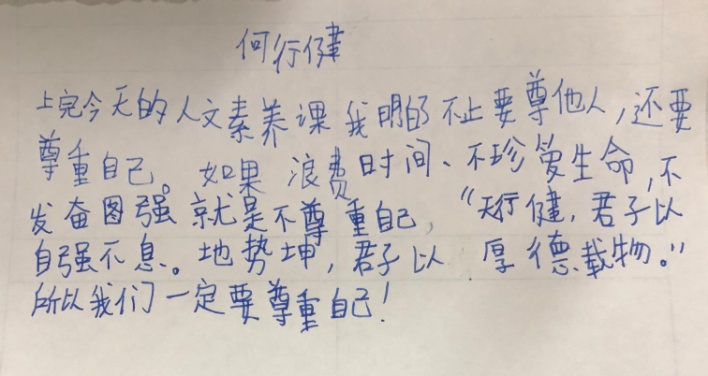 何行健
上完今天的人文素养课我明白不止要尊他人,还要
尊重自己。如果 浪费时间、不珍爱生命,不
发奋图强 就是不尊重自己,“天行健,君子以
自强不息。地势坤,君子以 厚德载物。”
所以我们一定要尊重自己!